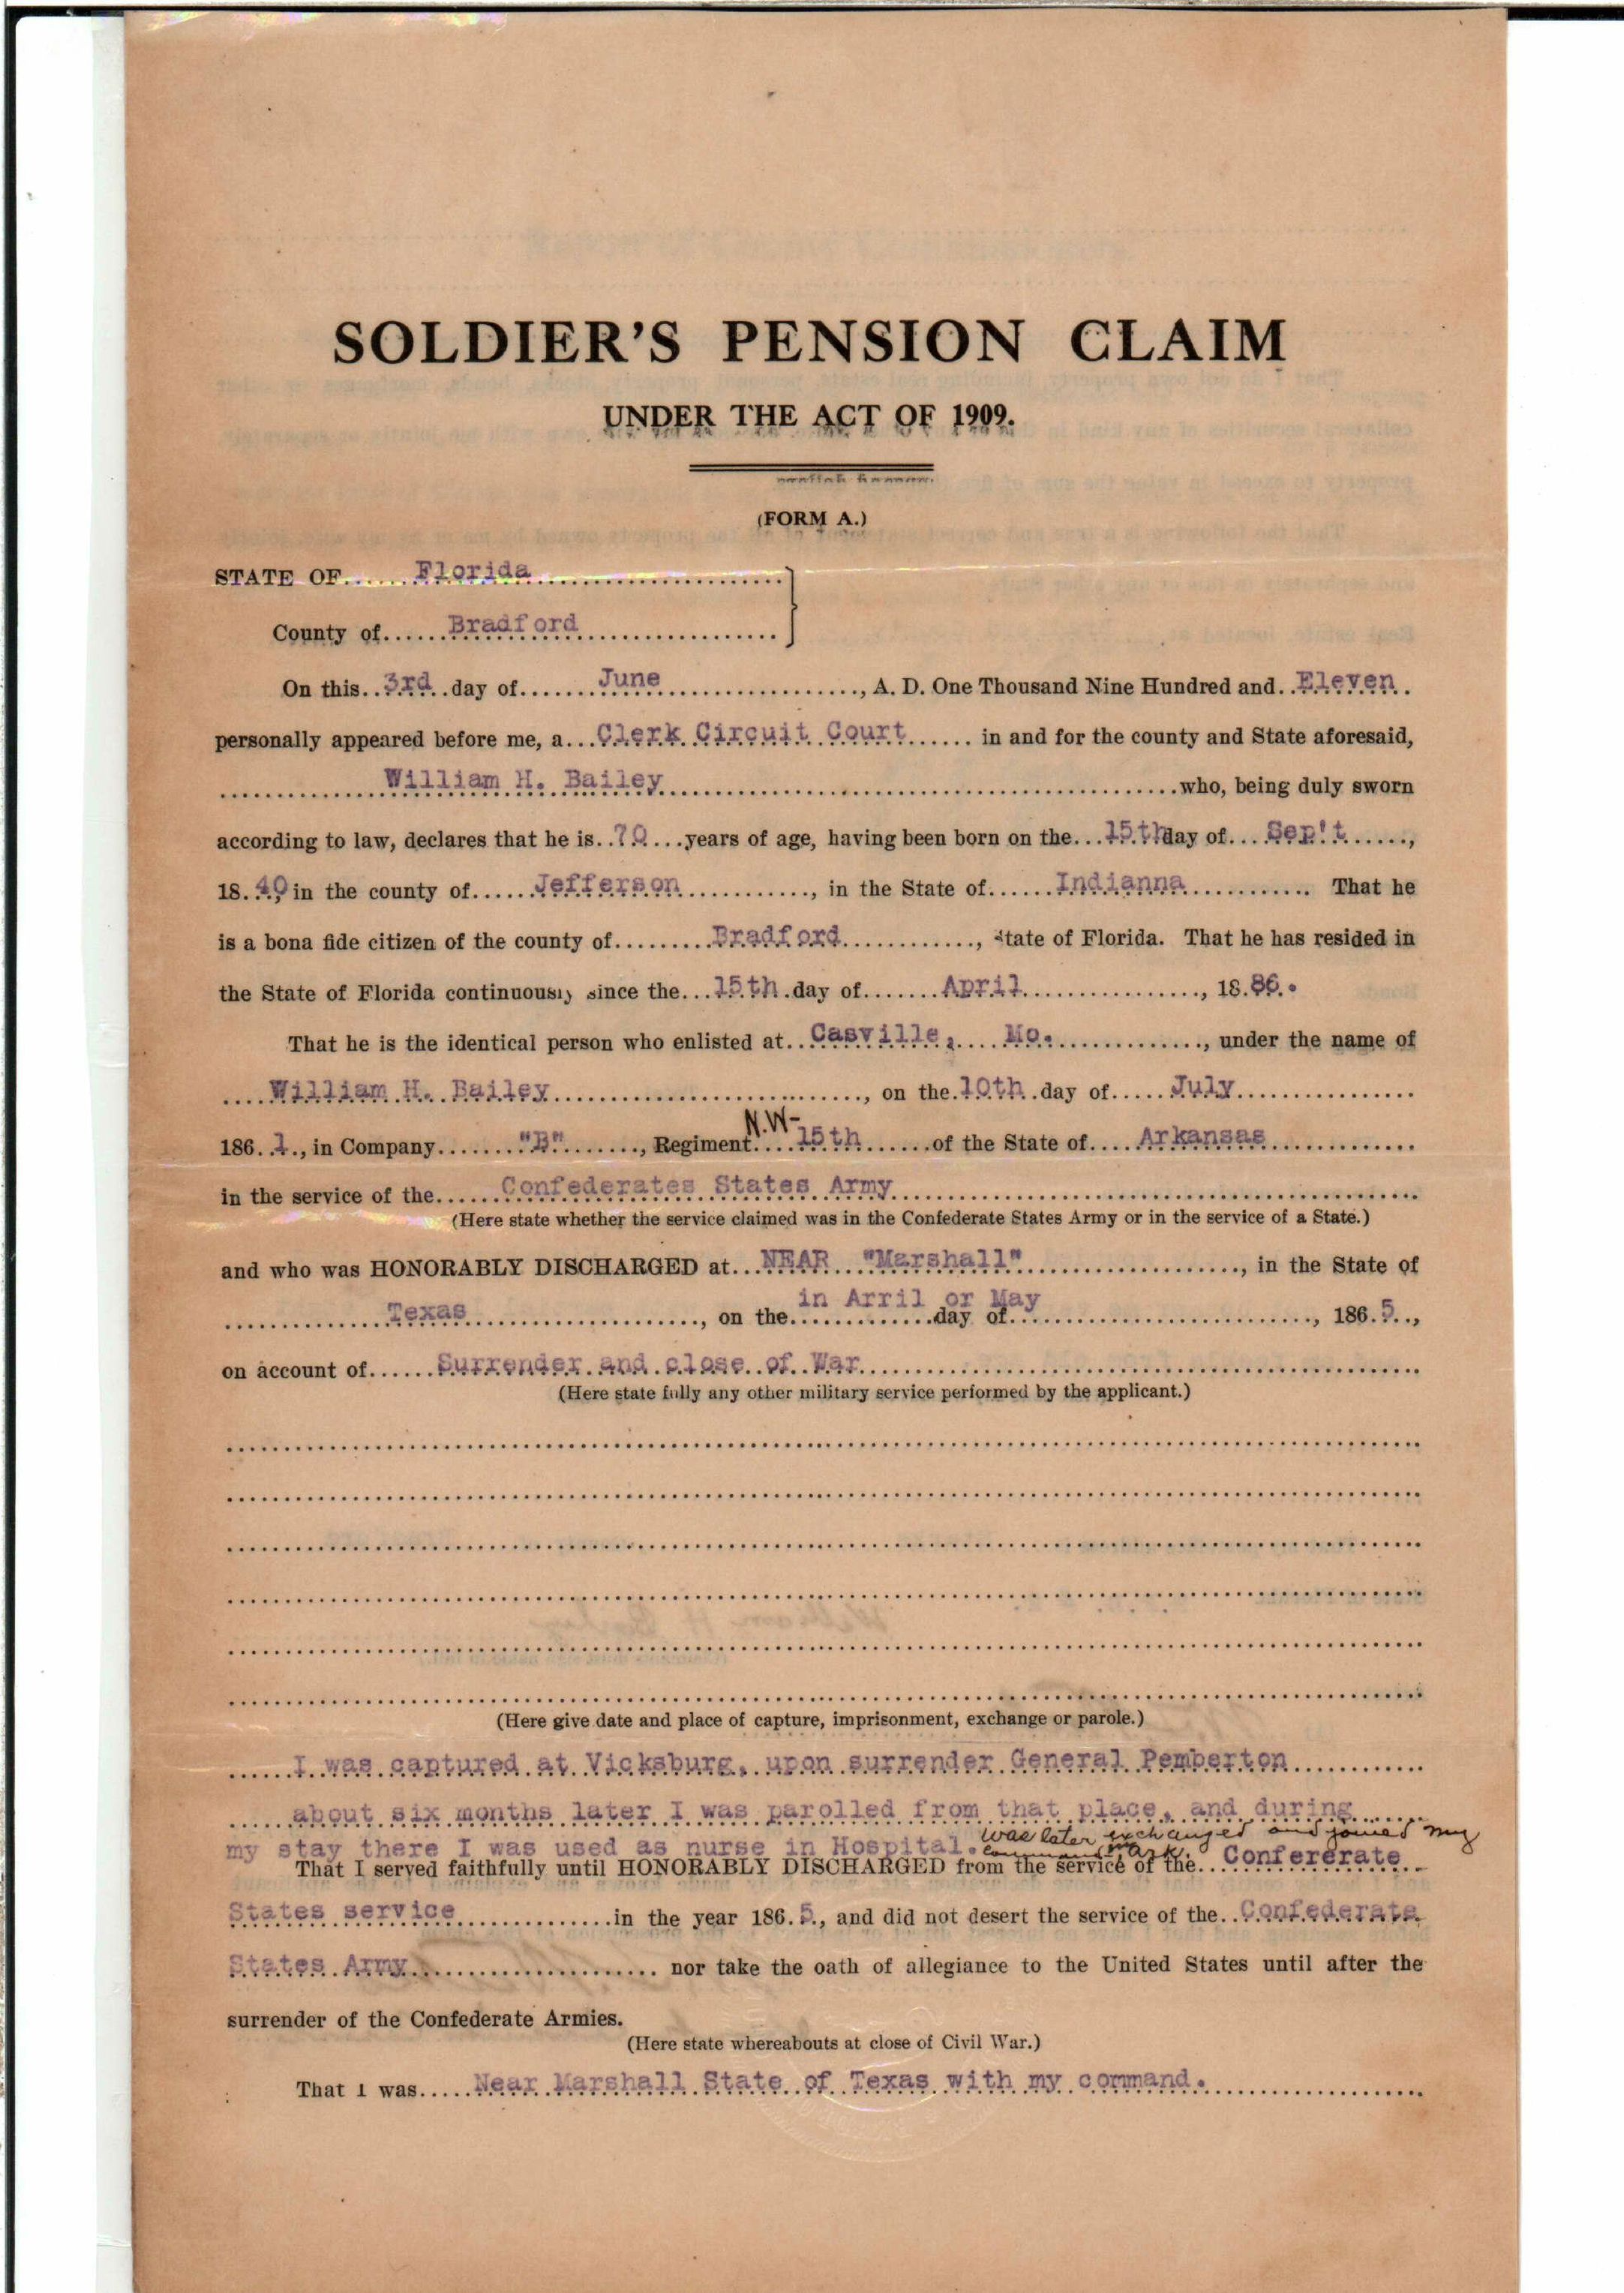 SOLDIER'S PENSION CLAIM
UNDER THE ACT OF 1909.
(FORM A.)
STATE OF Florida
County of Bradford
On this 3rd day of June, A. D. One Thousand Nine Hundred and Eleven.
personally appeared before me, a Clerk Circuit Court in and for the county and State aforesaid,
William H. Bailey who, being duly sworn
according to law, declares that he is 70 years of age, having been born on the 15th day of Sep't,
18 40, in the county of Jefferson, in the State of Indianna. That he
is a bona fide citizen of the county of Bradford, State of Florida. That he has resided in
the State of Florida continuously since the 15th day of April, 18 86.
That he is the identical person who enlisted at Casville, Mo., under the name of
William H. Bailey, on the 10th day of July
186 1, in Company "B", Regiment N.W- 15th of the State of Arkansas
in the service of the Confederates States Army
(Here state whether the service claimed was in the Confederate States Army or in the service of a State.)
and who was HONORABLY DISCHARGED at NEAR "Marshall", in the State of
Texas, on the in Arril or May day of, 186 5,
on account of Surrender and close of War
(Here state fully any other military service performed by the applicant.)
(Here give date and place of capture, imprisonment, exchange or parole.)
I was captured at Vicksburg, upon surrender General Pemberton
about six months later I was parolled from that place, and during
my stay there I was used as nurse in Hospital. was later exchanged and joined my
command in Ark.
That I served faithfully until HONORABLY DISCHARGED from the service of the Confererate
States service in the year 186 5, and did not desert the service of the Confederate
States Army nor take the oath of allegiance to the United States until after the
surrender of the Confederate Armies.
(Here state whereabouts at close of Civil War.)
That I was Near Marshall State of Texas with my command.